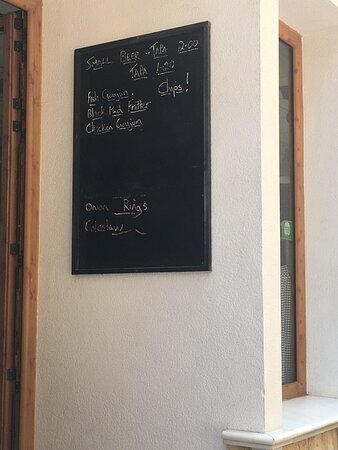 SMALL BEER + TAPA 2.00
TAPA 1.00
Fish Goujon. Chips!
Black Pud Fritter
Chicken Goujon
Onion Rings
Coleslaw